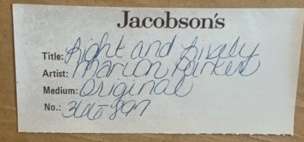 Jacobson's
Title: Right and Lively
Artist: Marion
Medium: Original
No.: